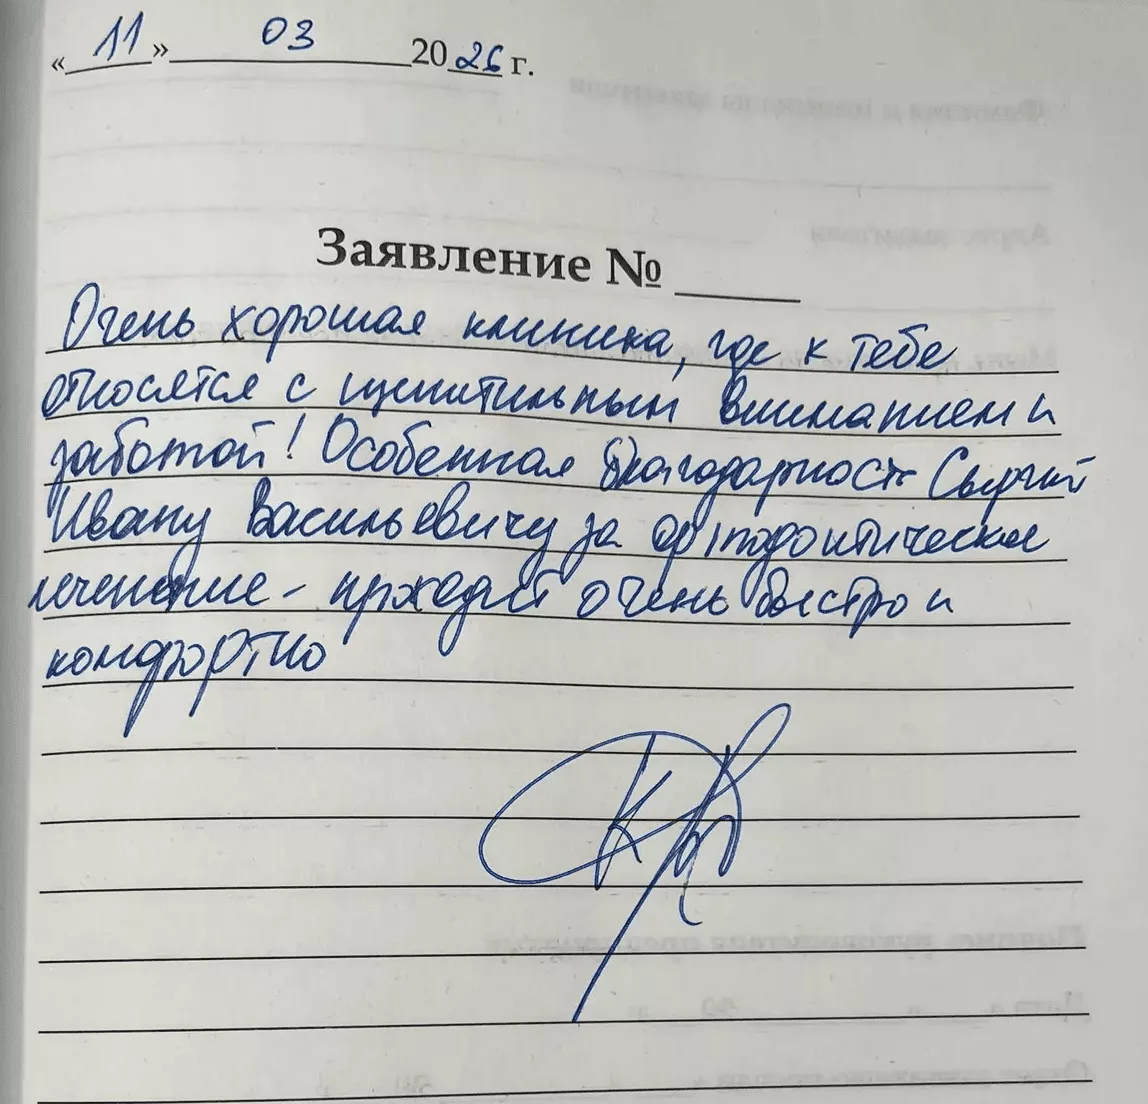 « 11 » 03 2026 г.
Заявление № ____
Очень хорошая клиника, где к тебе
относятся с щепитильным вниманием и
заботой! Особенная благодарность
Ивану Васильевичу за ортодонтическое
лечение - проходит очень быстро и
комфортно